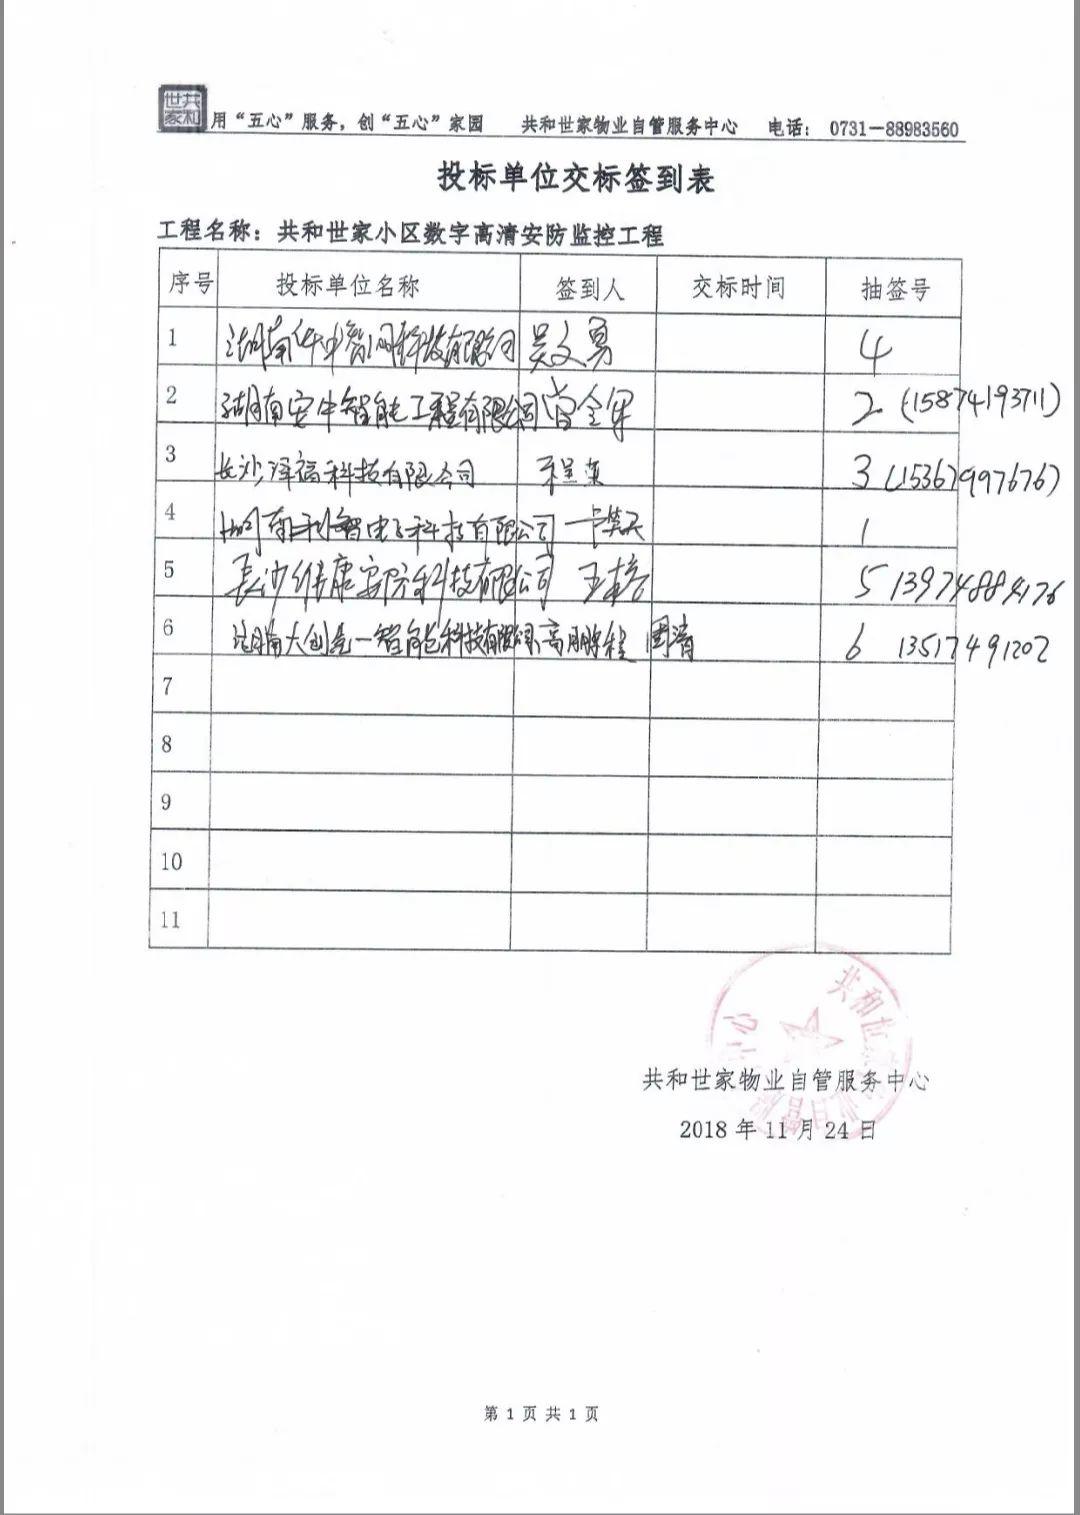 世共
家和
用“五心”服务，创“五心”家园 共和世家物业自管服务中心 电话： 0731－88983560
投标单位交标签到表
工程名称：共和世家小区数字高清安防监控工程
序号 投标单位名称 签到人 交标时间 抽签号
1 湖南华中智网科技有限公司 吴文勇 4
2 湖南安中智能工程有限公司 2 (15874193711)
3 长沙泽福科技有限公司 程 3 (15367997676)
4 湖南利智电子科技有限公司 1
5 长沙维康安防科技有限公司 王 5 13974884176
6 湖南大创造一智能科技有限公司 高鹏程 周清 6 13517491202
7
8
9
10
11
共和世家物业自管服务中心
2018 年 11 月 24 日
第 1 页 共 1 页